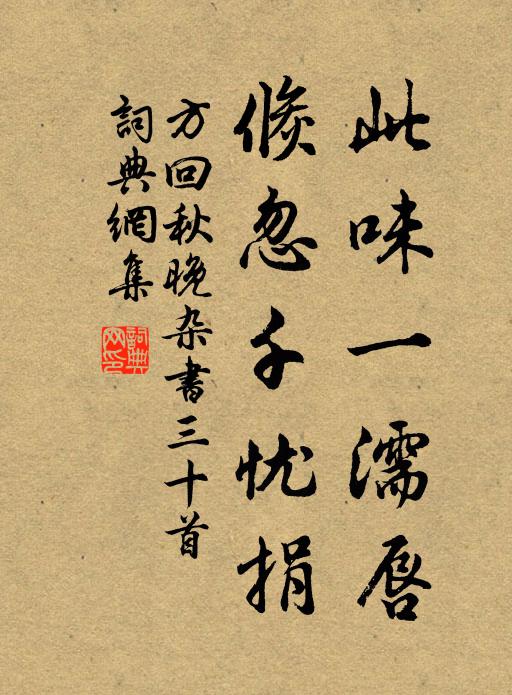 此味一濡唇
倏忽千忧捐
方回秋晚杂書三十首
詞典網集
詞典網印